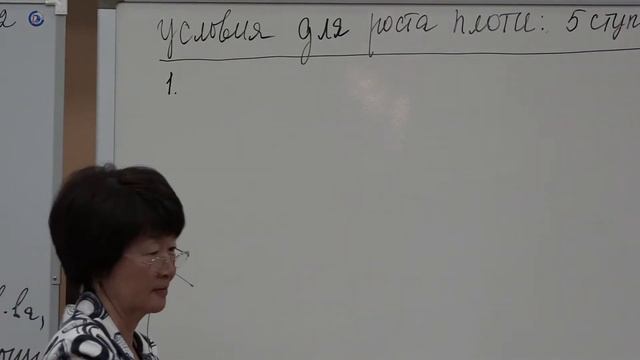 условия для роста плоти: 5 ступ
1.
2